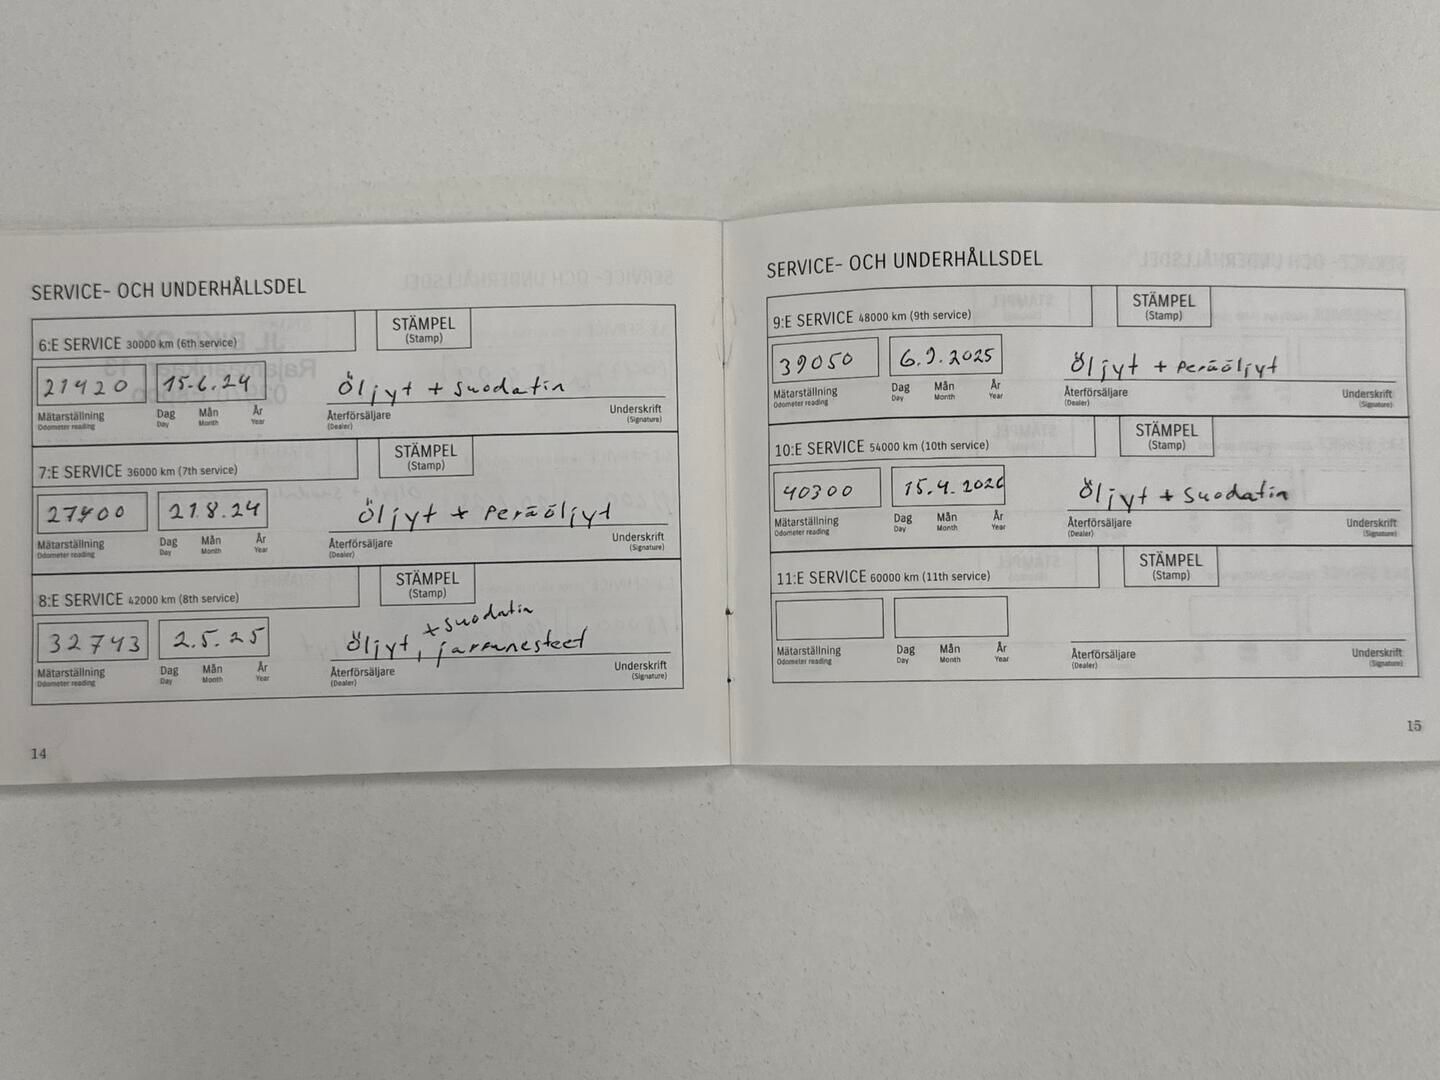 SERVICE- OCH UNDERHÅLLSDEL
6:E SERVICE 30000 km (6th service)
STÄMPEL
(Stamp)
21420 15.6.24 Öljyt + suodatin
Mätarställning Dag Mån År Återförsäljare Underskrift
Odometer reading Day Month Year (Dealer) (Signature)
7:E SERVICE 36000 km (7th service)
STÄMPEL
(Stamp)
27400 21.8.24 Öljyt + Peräöljyt
Mätarställning Dag Mån År Återförsäljare Underskrift
Odometer reading Day Month Year (Dealer) (Signature)
8:E SERVICE 42000 km (8th service)
STÄMPEL
(Stamp)
+ suodatin
32743 2.5.25 Öljyt, jarrunesteet
Mätarställning Dag Mån År Återförsäljare Underskrift
Odometer reading Day Month Year (Dealer) (Signature)
14
SERVICE- OCH UNDERHÅLLSDEL
9:E SERVICE 48000 km (9th service)
STÄMPEL
(Stamp)
39050 6.9.2025 Öljyt + Peräöljyt
Mätarställning Dag Mån År Återförsäljare Underskrift
Odometer reading Day Month Year (Dealer) (Signature)
10:E SERVICE 54000 km (10th service)
STÄMPEL
(Stamp)
40300 15.4.2026 Öljyt + Suodatin
Mätarställning Dag Mån År Återförsäljare Underskrift
Odometer reading Day Month Year (Dealer) (Signature)
11:E SERVICE 60000 km (11th service)
STÄMPEL
(Stamp)
Mätarställning Dag Mån År Återförsäljare Underskrift
Odometer reading Day Month Year (Dealer) (Signature)
15